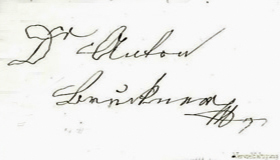 Dr Anton
Bruckner